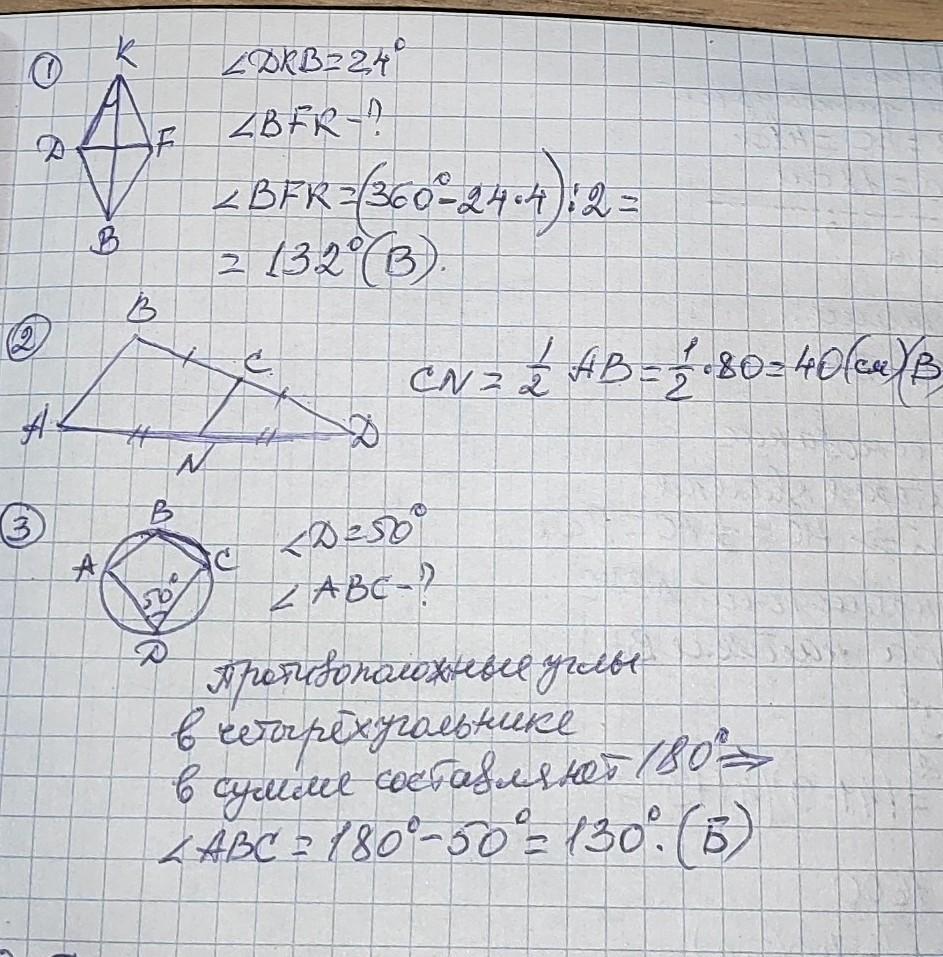 1
K
D
F
B
∠DKB=24°
∠BFK-?
∠BFK=(360°-24·4):2=
=132°(В).
2
B
C
A
N
D
CN = 1/2 AB = 1/2·80=40(см)(В
3
B
A
C
50°
D
∠D=50°
∠ABC-?
Противоположные углы
в четырёхугольнике
в сумме составляют 180°⇒
∠ABC=180°-50°=130°.(Б)